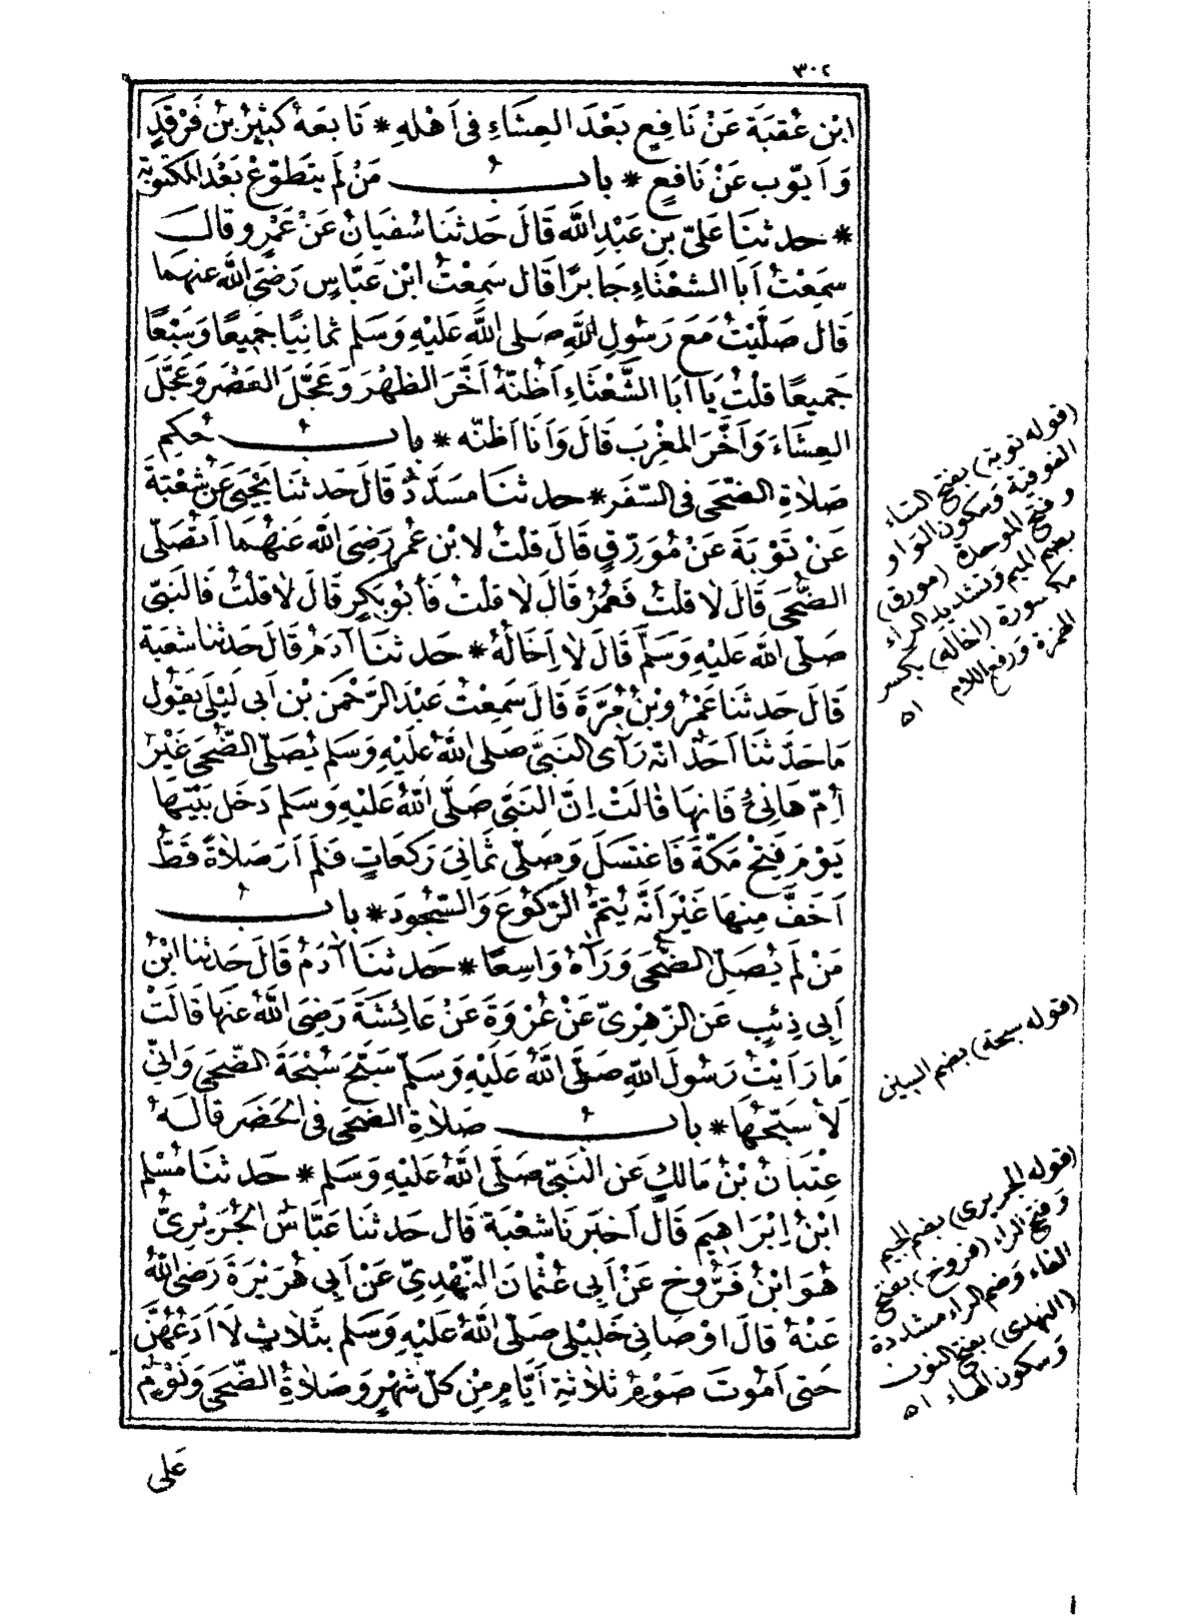 ٣٠٢
ابْنِ عُقْبَةَ عَنْ نَافِعٍ بَعْدَ العِشَاءِ فى اَهْلِهِ * تَابَعَهُ كَثِيْرُ بْنُ فَرْقَدٍ
وَاَيّوب عَنْ نَافِعٍ * بابُ مَنْ لَمْ يتَطَوّعْ بَعْدَ المَكتوبَة
* حدثنَا عَلىّ بن عَبْدِ اللّٰه قَالَ حَدثَنَا سُفيَانُ عَنْ عَمْرٍو قالَ
سمَعْتُ اَبا الشعْثَاءِ جَابرًا قَال سَمِعْتُ ابْنَ عَبَّاسٍ رَضىَ اللّٰه عنهما
قَال صَلَّيْتُ مَعَ رَسُولِ اللّٰهِ صَلى اللّٰهُ عَلَيْهِ وَسَلم ثمانِيًا جَمِيعًا وَسَبْعًا
جَميعًا قلْتُ يَا اَبَا الشَّعْثَاءِ اَظُنّهُ اَخَّرَ الظهْرَ وَعَجَّلَ العَصْرَ وَعَجَّلَ
العِشَاءَ وَاَخَّرَ المغْرِبَ قَالَ وَاَنَا اَظنّه * بابُ حُكمِ
صَلاةِ الضّحَى فى السّفَر * حدثنَا مسَدَّدٌ قَالَ حَدثنَا يَحْيَى عَنْ شعْبَةَ
عَنْ تَوْبَةَ عَنْ مُوَرِّقٍ قَالَ قلتُ لابْن عُمَر رَضِىَ اللّٰه عَنْهُمَا اَتُصَلّى
الضُّحَى قَالَ لَا قلْتُ فَعُمَرُ قَالَ لَا قلْتُ فَاَبُو بَكرٍ قَالَ لَا قلْتُ فَالنَبّى
صَلّى اللّٰهُ عَلَيْهِ وَسَلَّمَ قَالَ لَا اِخَالُهُ * حَدثنَا آدَمُ قَالَ حَدثنا شعبَة
قَالَ حَدثنَا عَمْرُو بْنُ مُرَّةَ قَالَ سَمِعْتُ عَبْدَ الرَّحْمنِ بْن اَبى لَيْلَى يَقُول
مَا حَدَّثنَا اَحَدٌ انّه رَآى النَبىَّ صَلى اللّٰهُ عَلَيْهِ وَسَلم يُصَلّى الضّحَى غَيْرُ
اُمّ هَانِئٍ فَانهَا قالَتْ اِنَّ النَبىَّ صَلّى اللّٰهُ عَلَيْهِ وَسَلم دَخَل بَيْتهَا
يَوْمَ فَتْحِ مَكّةَ فَاغتسَلَ وَصلّى ثَمانِىَ رَكعَاتٍ فَلم اَرَ صَلَاةً قَطُّ
اَخَفَّ مِنهَا غَيْرَ اَنَّه يُتِمُّ الرّكوعَ وَالسّجُودَ * بابُ
مَنْ لَم يُصَلِ الضُحَى وَرَآهُ وَاسِعًا * حَدثنَا آدَمُ قَالَ حَدثنا ابْنُ
اَبِى ذِئبٍ عَنِ الزّهْرِىّ عَنْ عُرْوَةَ عَنْ عَائِشَةَ رَضِىَ اللّٰهُ عَنهَا قَالَتْ
مَا رَاَيْتُ رَسُولَ اللّٰهِ صَلَّى اللّٰهُ عَلَيْهِ وَسَلّم سَبّحَ سُبْحَةَ الضّحَى وَاِنّى
لَاُسَبّحُهَا * بابُ صَلَاةِ الضّحَى فى الحَضَرِ قَالَهُ
عِتْبَانُ بْنُ مَالكٍ عَنِ النَبّى صَلَّى اللّٰهُ عَلَيْهِ وَسَلم * حَدثنَا مُسْلم
ابْنُ اِبْرَاهِيمَ قَالَ اَخبَرنَا شعْبَة قَالَ حَدثنَا عَبَّاسٌ الجُرَيْرِىُّ
هُوَ ابْنُ فَرُّوخ عَنْ اَبِى عُثمَانَ النّهْدِىّ عَنْ اَبِى هُرَيْرَةَ رَضِىَ اللّٰهُ
عَنْهُ قَالَ اَوْصَانِى خَلِيْلى صَلّى اللّٰهُ عَلَيْهِ وَسَلم بثَلَاثٍ لَا اَدَعُهُنَّ
حَتى اَمُوتَ صَوْمُ ثَلَاثةِ اَيَّامٍ مِنْ كلّ شهْرٍ وَصَلَاةُ الضّحَى وَنَوْمٌ
عَلى
(قوله توبة) بفتح التاء
الفوقية وسكون الواو
وفتح الموحدة (مورق)
بضم الميم وتشديد الراء
مكسورة (اخاله) بكسر
الهمزة ورفع اللام
اه
(قوله سبحة) بضم السين
(قوله الجريرى) بضم الجيم
وفتح الراء (فروخ) بفتح
الفاء وضم الراء مشددة
(النهدى) بفتح النون
وسكون الهاء اه